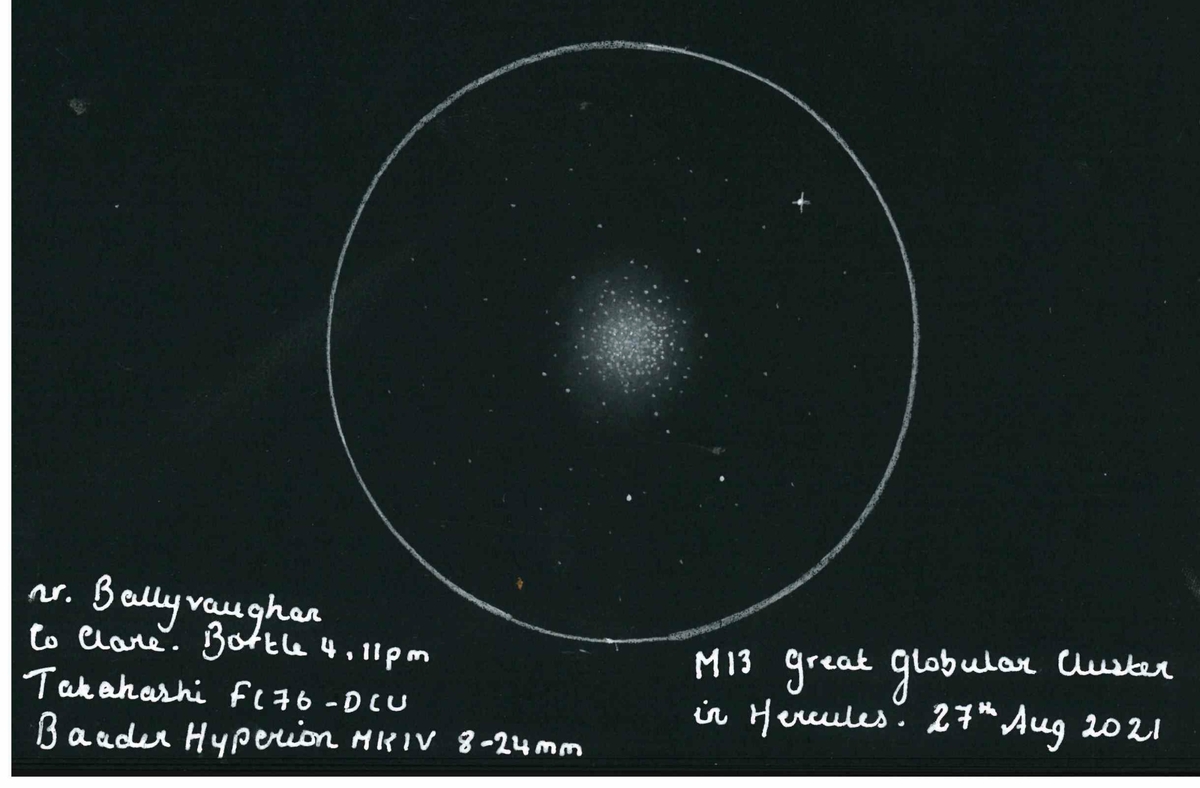 nr. Ballyvaughan
Co Clare. Bortle 4, 11pm
Takahashi FC76-DCU
Baader Hyperion MKIV 8-24mm
M13 Great Globular Cluster
in Hercules. 27th Aug 2021